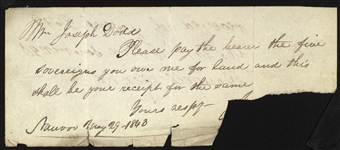 Mr Joseph Dodd
Please pay the bearer the five
sovereigns you owe me for land and this
shall be your receipt for the same
Yours respy-
Nauvoo May 29-1843